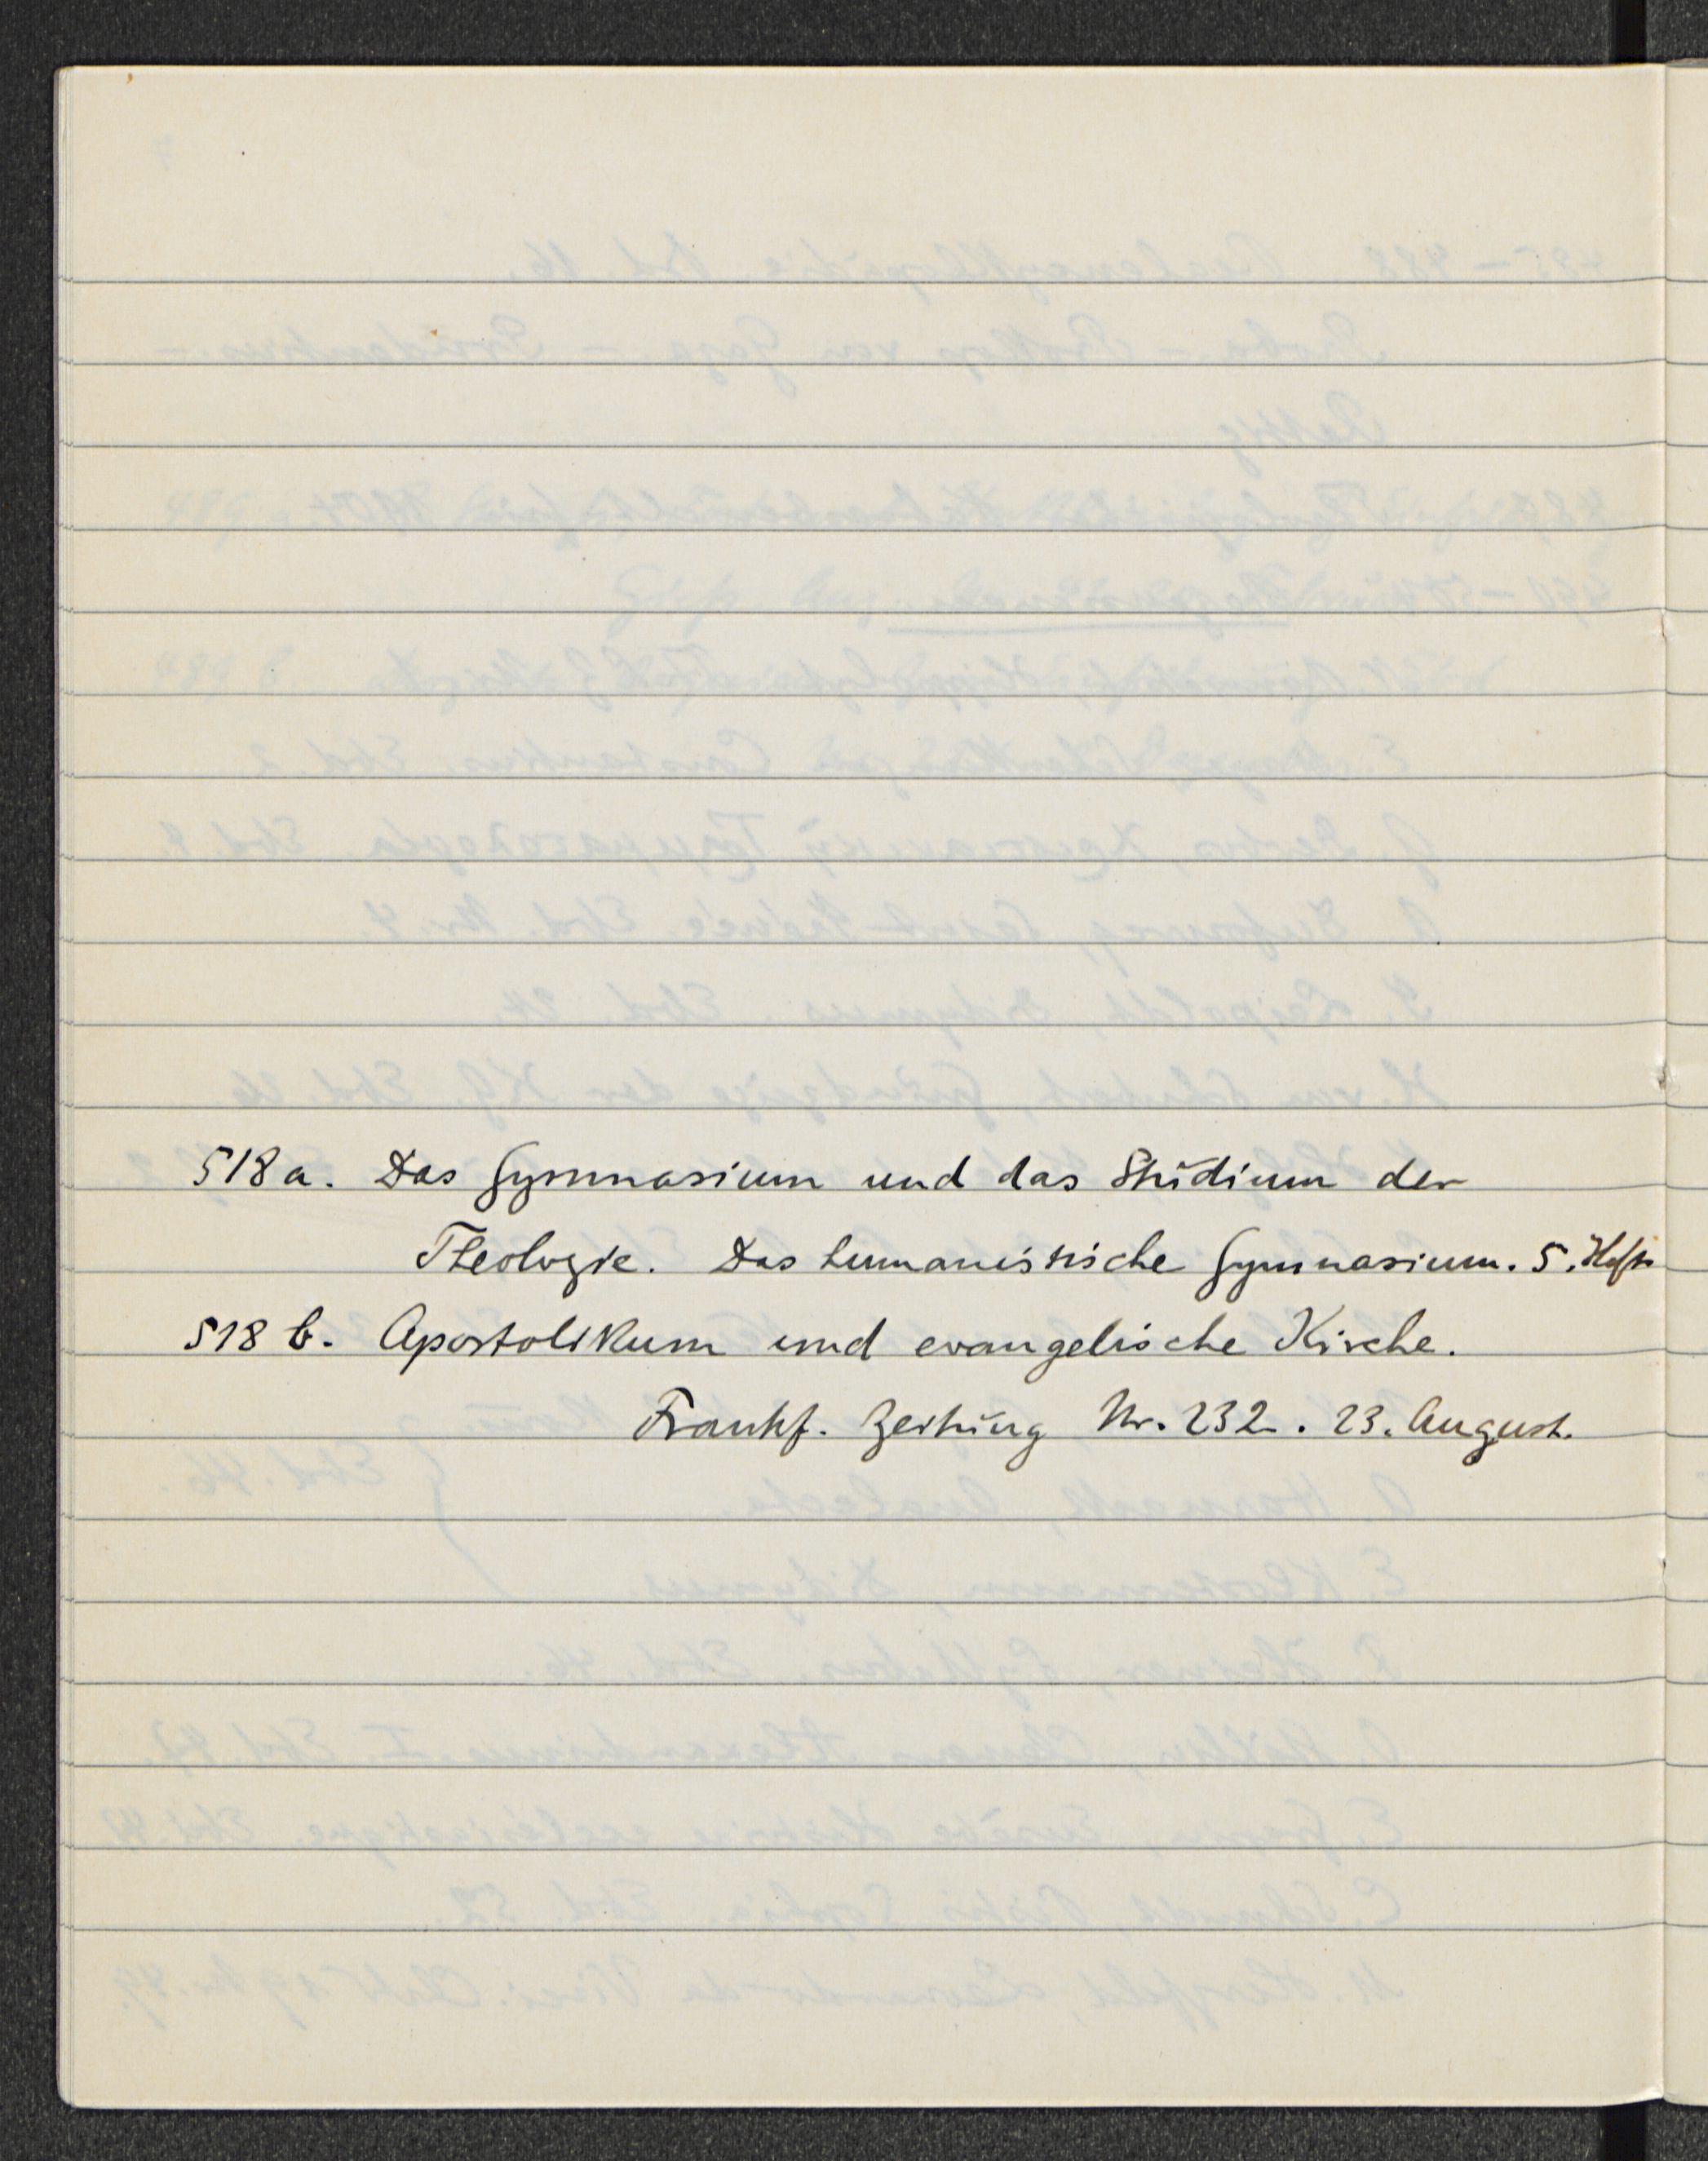 518 a. Das Gymnasium und das Studium der
Theologie. Das humanistische Gymnasium. 5. Heft
518 b. Apostolikum und evangelische Kirche.
Frankf. Zeitung Nr. 232. 23. August.